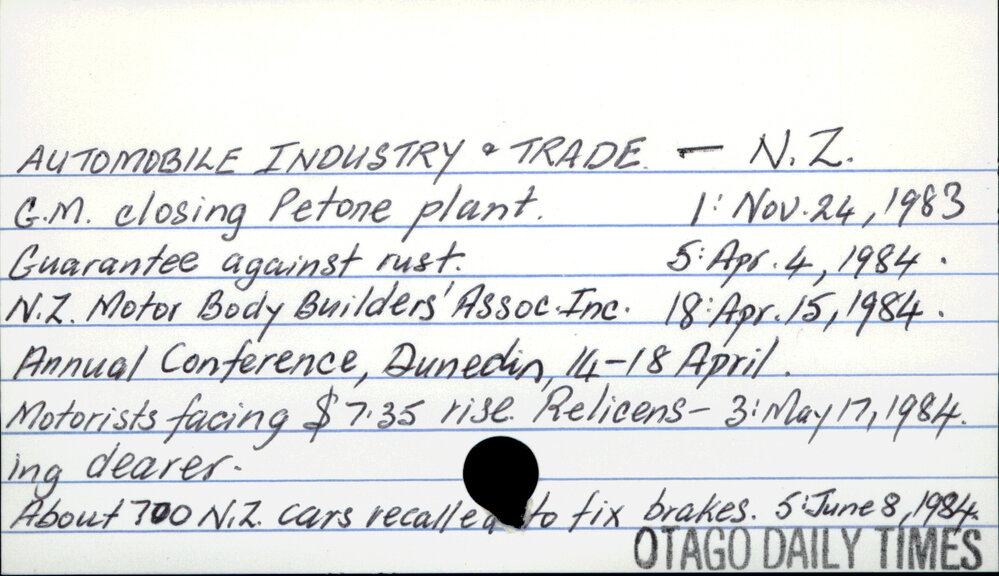 AUTOMOBILE INDUSTRY & TRADE. — N.Z.
G.M. closing Petone plant. 1: Nov. 24, 1983
Guarantee against rust. 5: Apr. 4, 1984.
N.Z. Motor Body Builders' Assoc. Inc. 18: Apr. 15, 1984.
Annual Conference, Dunedin, 14-18 April.
Motorists facing $7.35 rise. Relicens- 3: May 17, 1984.
ing dearer.
About 700 N.Z. cars recalled to fix brakes. 5: June 8, 1984.
OTAGO DAILY TIMES